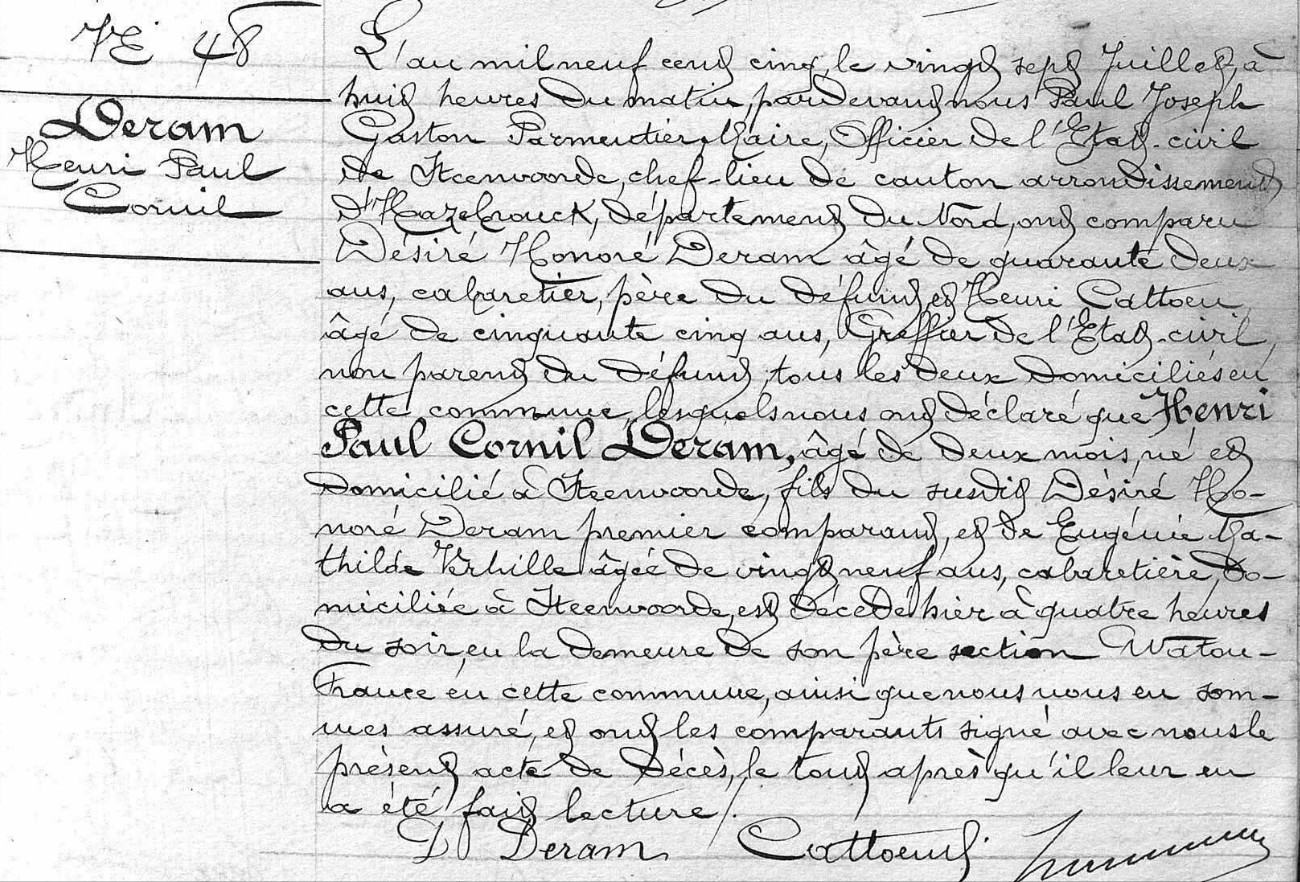 N° 48
Deram
Henri Paul
Cornil
L'an mil neuf cent cinq, le vingt sept Juillet, à
huit heures du matin, pardevant nous Paul Joseph
Gaston Parmentier, Maire, Officier de l'Etat-civil
de Steenvoorde, chef-lieu de canton arrondissement
d'Hazebrouck, département du Nord, ont comparu
Désiré Honoré Deram âgé de quarante deux
ans, cabaretier, père du défunt et Henri Cattoen,
âgé de cinquante cinq ans, Greffier de l'Etat-civil,
non parent du défunt, tous les deux domiciliés en
cette commune, lesquels nous ont déclaré que Henri
Paul Cornil Deram, âgé de deux mois, né et
domicilié à Steenvoorde, fils du susdit Désiré Ho-
noré Deram premier comparant, et de Eugénie Ma-
thilde Verhille âgée de vingt neuf ans, cabaretière, do-
miciliée à Steenvoorde, est décédé hier à quatre heures
du soir, en la demeure de son père section Watou-
France en cette commune, ainsi que nous nous en som-
mes assuré, et ont les comparants signé avec nous le
présent acte de décès, le tout après qu'il leur en
a été fait lecture /.
D Deram Cattoen